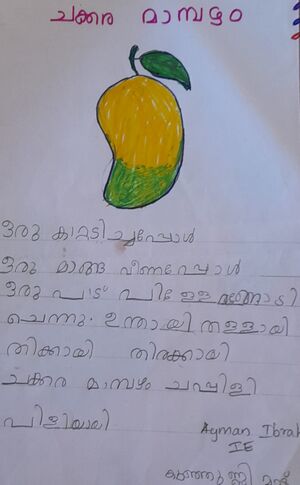 ചക്കര മാമ്പഴം
ഒരു കാറ്റടിച്ചപ്പോൾ
ഒരു മാങ്ങ വീണപ്പോൾ
ഒരു പാട് പിള്ളേരങ്ങോടി
ചെന്നു. ഉന്തായി തള്ളായി
തിക്കായി തിരക്കായി
ചക്കര മാമ്പഴം ചപ്ലിളി
പിളിയായി
Ayman Ibrah
IE